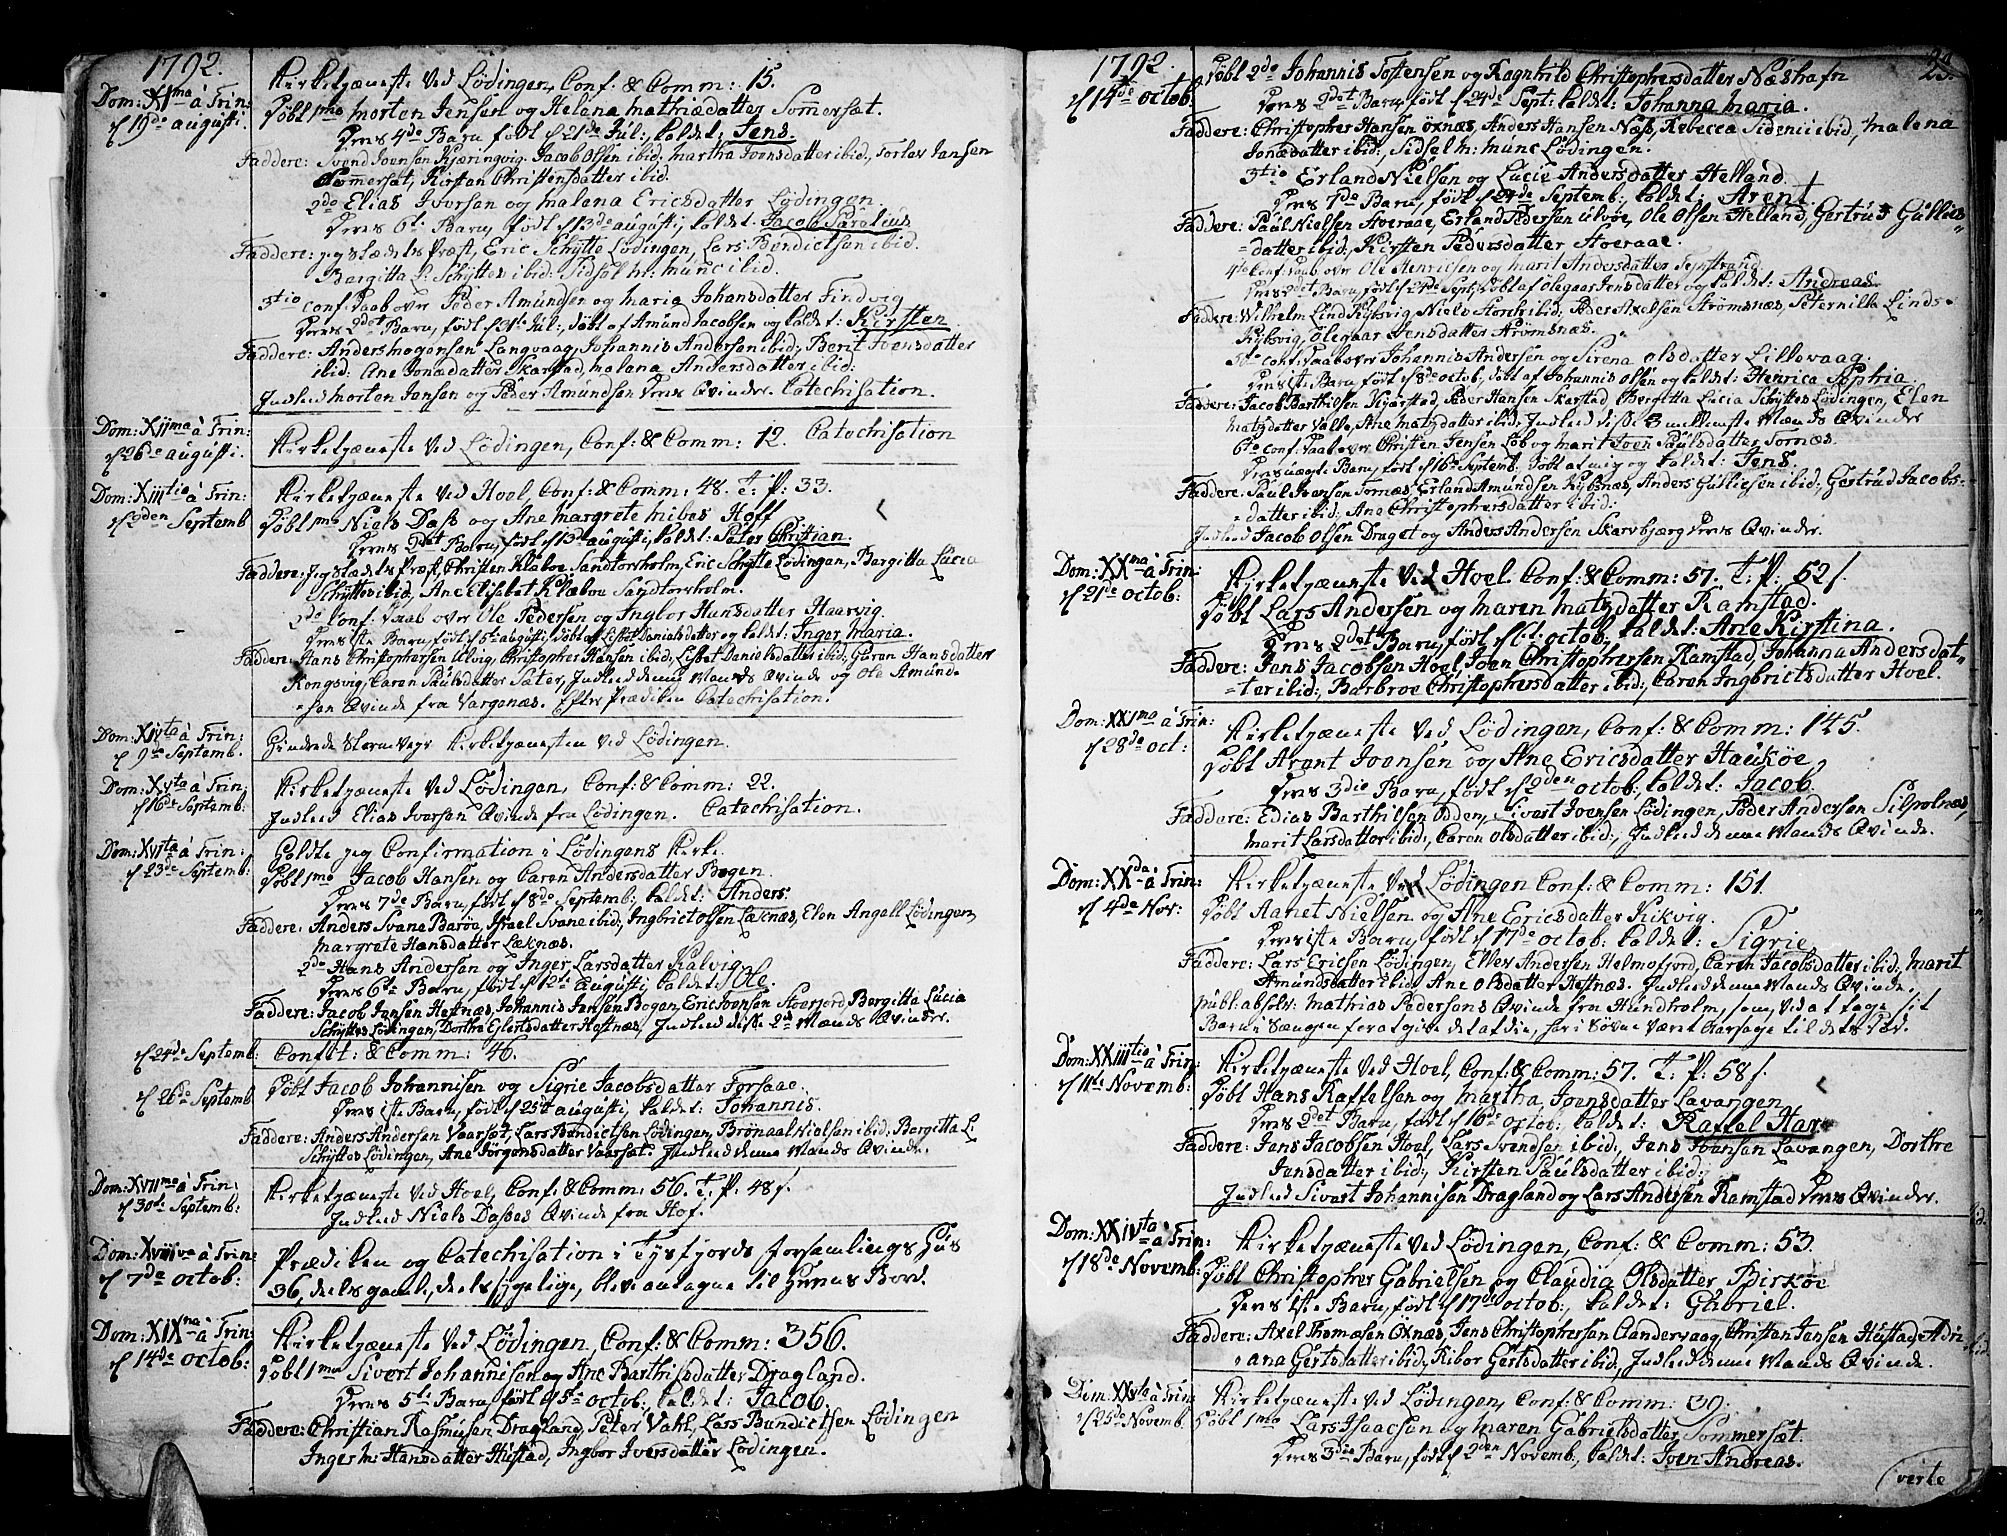 1792.
Dom: XIma à Trin:
d 19de augusti.
Kirketjæneste ved Lödingen, Conf: & Comm: 15.
Döbt 1mo Morten Jensen og Helena Mathiædatter Sommersæt.
Deres 4de Barn født d 21de Jul: kaldet: Jens.
Faddere: Svend Joensen Kjæringvig, Jacob Olsen ibid, Martha Joensdatter ibid, Torlev Jansen
Sommersæt, Kirsten Christensdatter ibid:
2do Elias Iversen og Malena Ericsdatter Lödingen.
Deres 6te Barn født d 13de augusti, kaldet: Jacob Parelius
Faddere: jeg stædets Præst, Eric Schytte Lödingen, Lars Bendictsen ibid.
Bergitta L: Schyttes ibid: Sidsel Hr: Munc ibid.
3tio Conf: Daab over Peder Amundsen og Maria Johansdatter Findvig
Deres 2det Barn, født d 31te Jul:, døbt af Amund Jacobsen og kaldet: Kirsten
Faddere: Anders Mogensen Langvaag, Johannis Andersen ibid:, Berit Joensdatter
ibid: Ane Jonædatter Skarstad, Malena Andersdatter ibid:
Indled Morten Jensen og Peder Amundsen deres Qvinder. Catechisation.
Dom: XIIma à Trin:
d 26de augusti.
Kirketjæneste ved Lödingen, Conf: & Comm: 12. Catechisation
Dom: XIIItia à Trin:
d 2den Septemb
Kirketjæneste ved Hoel, Conf: & Comm: 48. T: P: 33.
Döbt 1mo Niels Dass og Ane Margrete Mibes Hoff
Deres 2det Barn, født d 13de augusti, kaldet: Peter Christian.
Faddere: Jeg stædets Præst, Christen Klæboe Sandtorvholm, Eric Schytte Lödingen, Bergitta Lucia
Schyttes ibid, Ane Elisabet Klæboe Sandtorvholm.
2do Conf: Daab over Ole Pedersen og Ingbor Hansdatter Haarvig.
Deres 1ste Barn, født d 5te augusti, døbt af Lisbet Danielsdatter og kaldet: Inger Maria.
Faddere: Hans Christophersen Ulvig, Christopher Hansen ibid:, Lisbet Danielsdatter ibid:, Guren Hansdatter
Kongsvig, Caren Paulsdatter Sæter, Indled denne Mands Qvinde og Ole Amund-
-sen Qvinde fra Vargenæs. Efter Prædiken Catechisation.
Dom: XIVta à Trin:
d 9de Septemb.
Hindrede Stormveyr Kirketjænesten ved Lödingen.
Dom: XVta à Trin:
d 16de Septemb:
Kirketjæneste ved Lödingen, Conf: & Comm: 22.
Indled Elias Iversen Qvinde fra Lödingen. Catechisation.
Dom: XVIta à Trin:
d 23de Septemb:
Holdte jeg Confirmation i Lödingens Kirke.
Döbt 1mo Jacob Hansen og Caren Andersdatter Bogen.
Deres 7de Barn, født d 8de Septemb:, kaldet: Anders.
Faddere: Anders Svane Barøe, Israel Svane ibid:, Ingbrict Olsen Læknæs, Elen Angell Lödingen,
Margrete Hansdatter Læknæs.
2do Hans Andersen og Inger Larsdatter Kalvig
Deres 6te Barn, født d 12te augusti, kaldet: Ole.
Faddere: Jacob Jansen Hestnæs, Johannis Jansen Bogen, Eric Joensen Storfjord, Bergitta Lucia
Schyttes Lödingen, Dorthe Gjertsdatter Hestnæs, Indled disse 2de Mænds Qvinder.
d 24de Septemb: Confit: & Comm: 46.
d 26de Septemb
Döbt Jacob Johannisen og Sigrie Jacobsdatter Forsaae.
Deres 1ste Barn, født d 25de augusti, kaldet: Johannis.
Faddere: Anders Andersen Vaarsæt, Lars Bendictsen Lödingen, Brönaal Nielsen ibid: Bergitta L:
Schyttes Lödingen, Ane Jörgensdatter Vaarsæt. Indled denne Mands Qvinde.
Dom: XVIIma à Trin:
d 30te Septemb:
Kirketjæneste ved Hoel, Conf: & Comm: 56. T: P: 48 s.
Indled Niels Dasses Qvinde fra Hof.
Dom: XVIIIva à Trin:
d 7de Octob:
Prædiken og Catechisation i Tysfjords Forsamlings Huus
36, deels gamle, deels sygelige, blev antagne til Herrens Bord.
Dom: XIXna à Trin:
d 14de Octob:
Kirketjæneste ved Lödingen, Conf: & Comm: 356.
Döbt 1mo Sivert Johannisen og Ane Barthisdatter Dragland.
Deres 5te Barn, født d 5te Octob:, kaldet: Jacob.
Faddere: Christian Rasmusen Dragland, Peter Vahl, Lars Bundictsen Lödingen
Inger M: Hansdatter Hustad, Ingbor Iversdatter Lödingen.
1792.
23.
d 14de Octob:
Döbt 2do Johannis Tostensen og Ragnhild Christophersdatter Næshafn
Deres 2det Barn, født d 24de Sept: kaldet: Johanna Maria.
Faddere: Christopher Hansen Öxnæs, Anders Hansen Næs, Rebecca Sidenii ibid, Malena
Jonædatter ibid:, Sidsel M: Munc Lödingen.
3tio Erland Nielsen og Lucie Andersdatter Helland
Deres 7de Barn, født d 24de Septemb:, kaldet: Arent.
Faddere: Paul Nielsen Hveraae, Erland Pedersen Ulvöe, Ole Olsen Helland, Gertrud Gullics
-datter ibid:, Kirsten Pedersdatter Hveraae.
4to Conf: Daab over Ole Henricsen og Marit Andersdatter
Deres 2det Barn, født d 24de Sept:, døbt af Olegaar Jensdatter og kaldet: Andreas
Faddere: Wilhelm Lind Rybsvig, Niels Storch ibid:, Peder Axelsen Strömsnæs, Peternille Linds
Rybsvig, Olegaar Jensdatter Strömsnæs.
5to Conf: Daab over Johannis Andersen og Sirena Olsdatter Lillevaag.
Deres 1ste Barn, født d 8de Octob:, døbt af Johannis Olsen og kaldet: Henrica Sophia
Faddere: Jacob Barthilsen Kjærstad, Peder Hansen Skarstad, Bergitta Lucia Schyttes Lödingen, Elen
Matzdatter Valle, Ane Matzdatter ibid:, Indled disse 3 Mænds Qvinder
6to Conf: Daab over Christen Jensen Löb og Marit Joen Paulsdatter Tornæs.
Deres uægte Barn, født d 16de Septemb: døbt af mig og kaldet: Jens.
Faddere: Paul Ivarsen Tornæs, Erland Amundsen Rybsnæs, Anders Gulliesen ibid:, Gertrud Jacobs-
-datter ibid:, Ane Christophersdatter ibid:
Indled Jacob Olsen Draget og Anders Andersen Skarvbjærg deres Qvinder.
Dom: XXma à Trin:
d 21de Octob:
Kirketjæneste ved Hoel. Conf: & Comm: 57. T: P: 52 s.
Döbt Lars Andersen og Maren Matzdatter Ramstad.
Deres 2det Barn, født d 6te Octob:, kaldet: Ane Kirstina.
Faddere: Jens Jacobsen Hoel, Joen Christophersen Ramstad, Johanna Andersdat-
-ter ibid:, Barbroe Christophersdatter ibid:, Caren Ingbrictsdatter Hoel.
Dom: XXIma à Trin:
d 28de Oct:
Kirketjæneste ved Lödingen, Conf: & Comm: 145.
Döbt Arent Joensen og Ane Ericsdatter Haukøe,
Deres 3die Barn, født d 2den Octob:, kaldet: Jacob.
Faddere: Edias Barthilsen Odden, Sivert Joensen Lödingen, Peder Andersen Silpolnæs,
Marit Larsdatter ibid:, Caren Olsdatter ibid:, Indled denne Mands Qvinde.
Dom: XXda à Trin:
d 4de Nov:
Kirketjæneste ved Lödingen Conf: & Comm: 151.
Döbt Aanet Nielsen og Ane Ericsdatter Kikvig.
Deres 1ste Barn, født d 17de Octob: kaldet: Sigrie
Faddere: Lars Ericsen Lödingen, Ellev Andersen Helmofjord, Caren Jacobsdatter ibid:, Marit
Amundsdatter ibid: Ane Olsdatter Hestnæs. Indled denne Mands Qvinde.
publ: absolv: Mathias Pedersens Qvinde fra Hundholm, som, ved at tage sit
Barn i Sængen for at give det at die, har i Søvne været Aarsage til dets Död.
Dom: XXIIItia à Trin:
d 11te Novemb:
Kirketjæneste ved Hoel, Conf: & Comm: 57. T: P: 58 s.
Döbt Hans Raffelsen og Martha Joensdatter Lavangen.
Deres 2det Barn, født d 16de Octob: kaldet: Raffel Hans
Faddere: Jens Jacobsen Hoel, Lars Svendsen ibid:, Jens Hansen Lavangen, Dorthe
Jensdatter ibid:, Kirsten Paulsdatter ibid:,
Indled Sivert Johannisen Dragland og Lars Andersen Ramstad deres Qvinder.
Dom: XXIVta à Trin:
d 18de Novemb:
Kirketjæneste ved Lödingen, Conf: & Comm: 53.
Döbt Christopher Gabrielsen og Claudia Olsdatter Birkøe
Deres 1ste Barn, født d 17de Octob:, kaldet: Gabriel.
Faddere: Axel Thomæsen Öxnæs, Jens Christophersen Sandersvaag, Christen Jansen Hustad, Adri
-ana Gertsdatter ibid:, Ribor Gertsdatter ibid, Indled denne Mands Qvinde.
Dom: XXVta à Trin:
d 25de Novemb.
Kirketjæneste ved Lödingen, Conf: & Comm: 39.
Döbt 1mo Lars Isaacsen og Maren Gabrielsdatter Sommersæt.
Deres 3die Barn, født d 2den Novemb:, kaldet: Joen Andreas.
verte